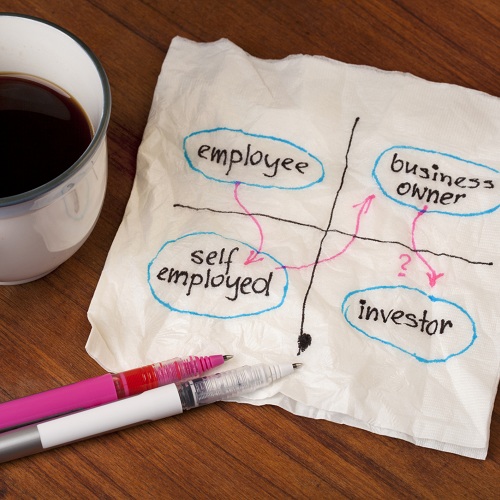 employee
business
owner
self
employed
?
investor